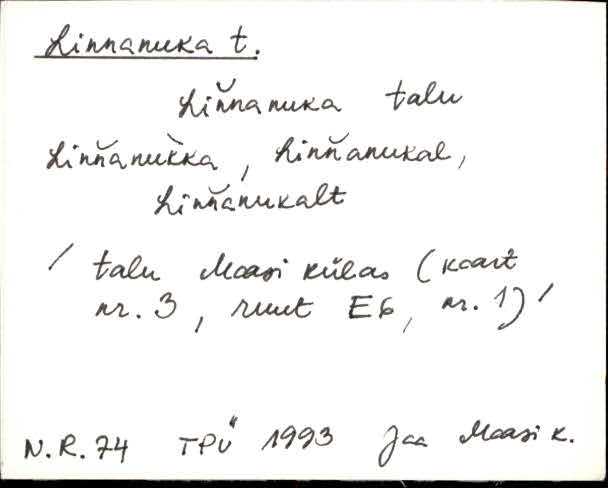 Linnanuka t.
Lin̆nanuka talu
Linn̆anuk̀ka, Linn̆anukal,
Linn̆anukalt
/ talu Maasi külas (kaart
nr. 3, ruut E6, nr. 1) /
N.R. 74 TPÜ 1993 Jaa Maasi k.